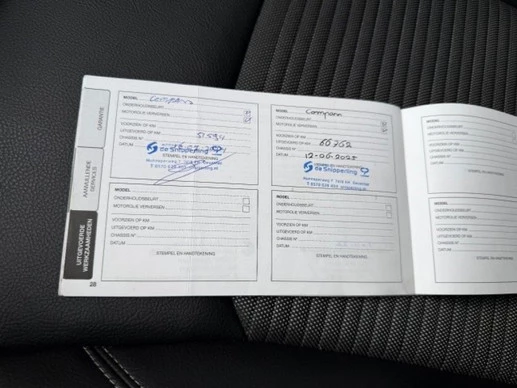 GARANTIE
AANVULLENDE
SERVICES
UITGEVOERDE
WERKZAAMHEDEN
MODEL Compass
ONDERHOUDSBEURT
MOTOROLIE VERVERSEN
VOORZIEN OP KM
UITGEVOERD OP KM
CHASSIS N°
DATUM
de Snipperling
STEMPEL EN HANDTEKENING
MODEL
ONDERHOUDSBEURT
MOTOROLIE VERVERSEN
VOORZIEN OP KM
UITGEVOERD OP KM
CHASSIS N°
DATUM
STEMPEL EN HANDTEKENING
28
MODEL Compass
ONDERHOUDSBEURT
MOTOROLIE VERVERSEN
VOORZIEN OP KM
UITGEVOERD OP KM
CHASSIS N°
DATUM 12-06-2025
de Snipperling
MODEL
ONDERHOUDSBEURT
MOTOROLIE VERVERSEN
VOORZIEN OP KM
UITGEVOERD OP KM
CHASSIS N°
DATUM
STEMPEL EN HANDTEKENING
MODEL
ONDERHOUDSBEURT
MOTOROLIE VERVERSEN
VOORZIEN OP KM
UITGEVOERD OP KM
CHASSIS N°
DATUM
MODEL
ONDERHOUDSBEURT
MOTOROLIE VERVERSEN
VOORZIEN OP KM
UITGEVOERD OP KM
CHASSIS N°
DATUM